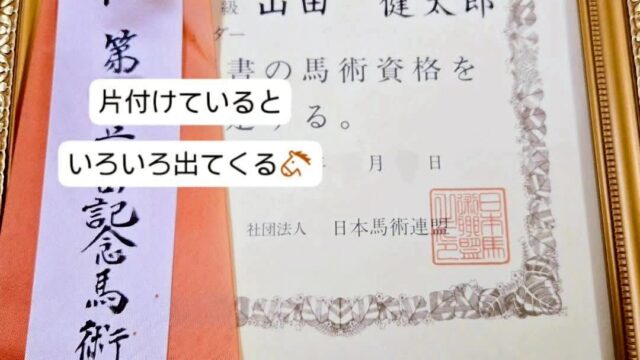 第
記念馬術
級 山田 健太郎
ダー
書の馬術資格を
する。
月 日
社団法人 日本馬術連盟
片付けていると
いろいろ出てくる🐴